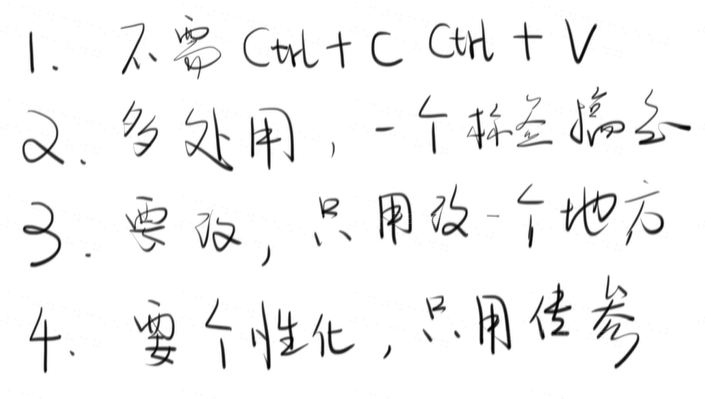 1. 不需 Ctrl + C Ctrl + V
2. 多处用，一个标签搞定
3. 要改，只用改一个地方
4. 要个性化，只用传参